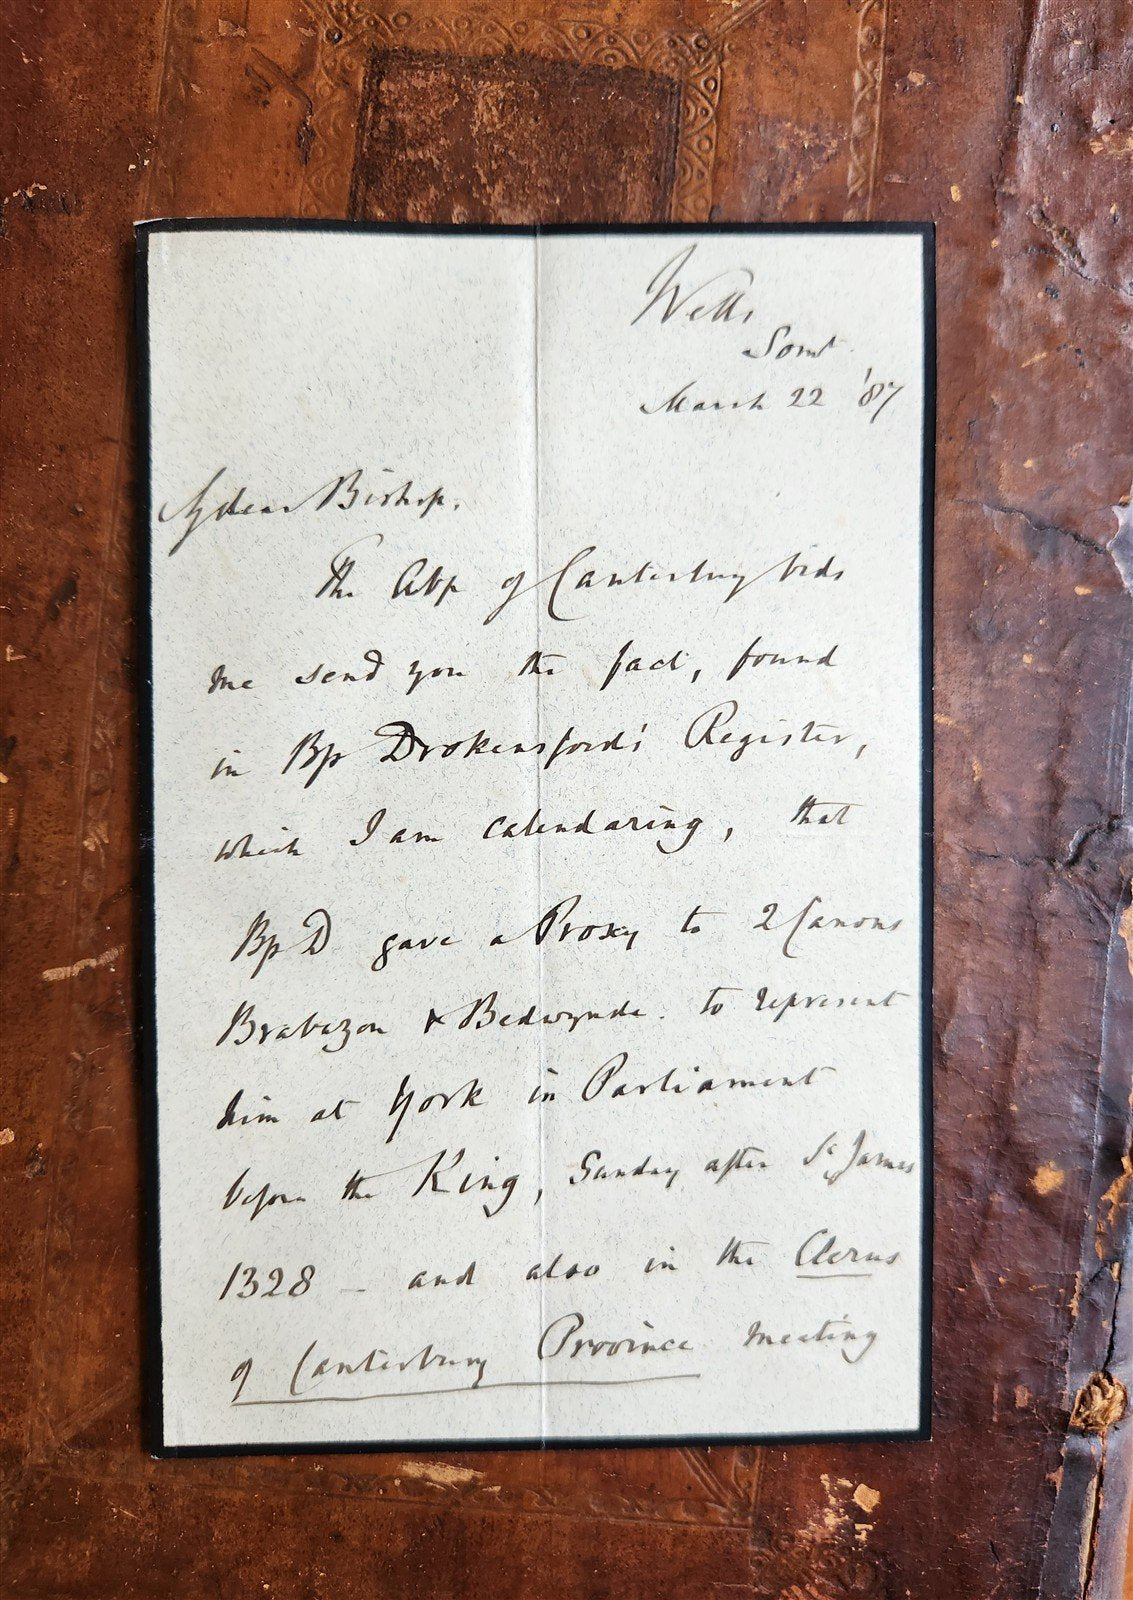 Wells
Somt
March 22 '87
My dear Bishop.
The Abp of Canterbury bids
me send you the fact, found
in Bp Drokensford's Register,
which I am calendaring, that
Bp D gave a Proxy to 2 Canons
Brabazon & Bedwynde. to represent
him at York in Parliament
before the King, Sunday after St James
1328 – and also in the Clerus
of Canterbury Province meeting